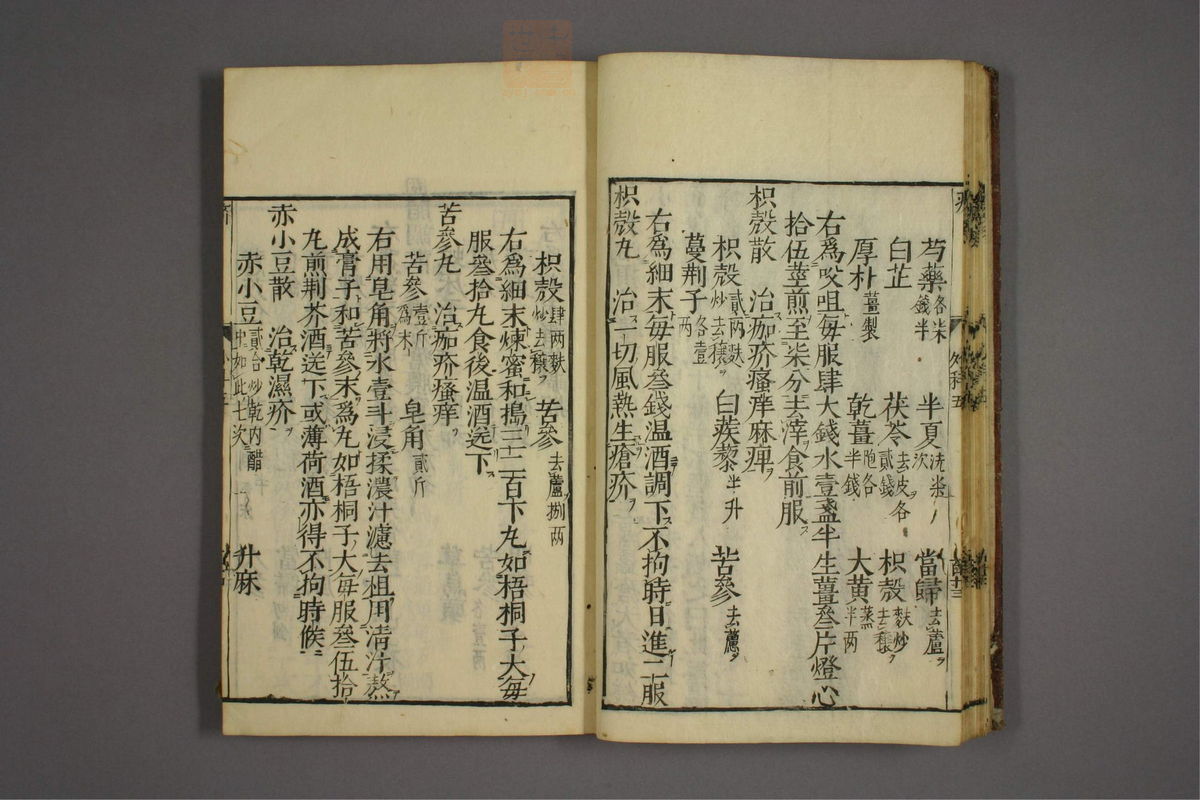 芍藥各柒錢半 半夏洗柒次 當歸去蘆
白芷 茯苓去皮各貳錢 枳殻麩炒去穰
厚朴薑製 乾薑炮各半錢 大黄蒸半两
右爲㕮咀毎服肆大錢水壹盞半生薑叁片燈心
拾伍莖煎至柒分去滓食前服
枳殻散 治痂疥瘙痒麻痺
枳殻貳两麩炒去穰 白蒺藜半升 苦參去蘆
蔓荆子各壹两
右爲細末毎服叁錢温酒調下不拘時日進二服
枳殻丸 治一切風熱生瘡疥
枳殻肆两麩炒去穰 苦參去蘆捌两
右爲細末煉蜜和搗三二百下丸如梧桐子大毎
服叁拾丸食後温酒送下
苦參丸 治痂疥瘙痒
苦參壹斤爲末 皂角貳斤
右用皂角將水壹斗浸揉濃汁濾去柤用清汁熬
成膏子和苦參末爲丸如梧桐子大毎服叁伍拾
丸煎荆芥酒送下或薄荷酒亦得不拘時候
赤小豆散 治乾濕疥
赤小豆貳合炒乾内醋中如此七次 升麻